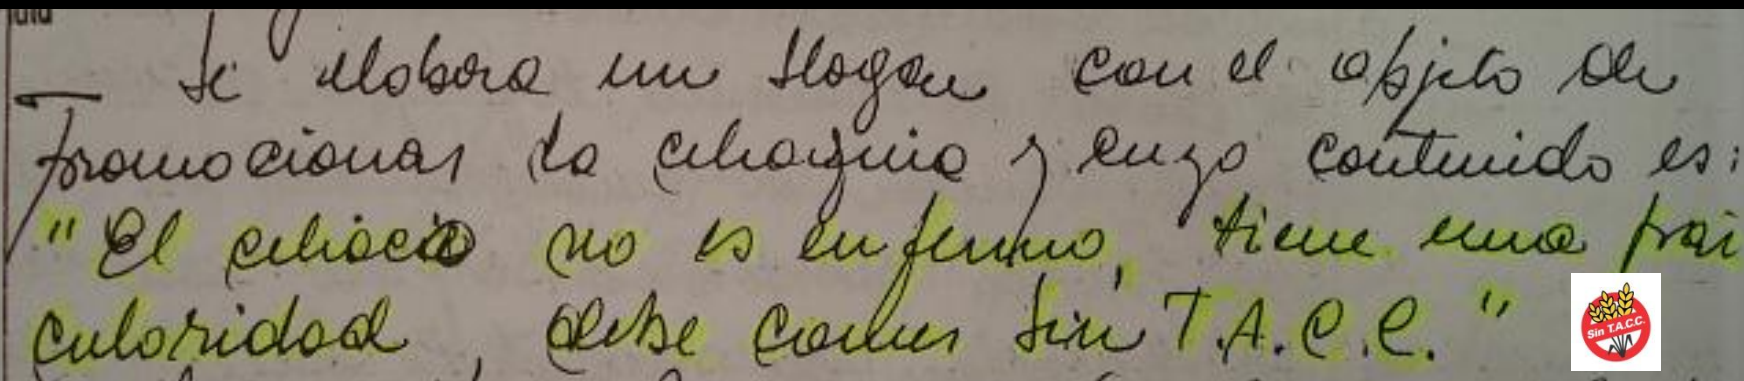 — Se elabora un slogan con el objeto de
promocionar la celiaquia y cuyo contenido es:
"El celiaco no es enfermo, tiene una par
cularidad, debe comer sin T.A.C.C."
Sin T.A.C.C.